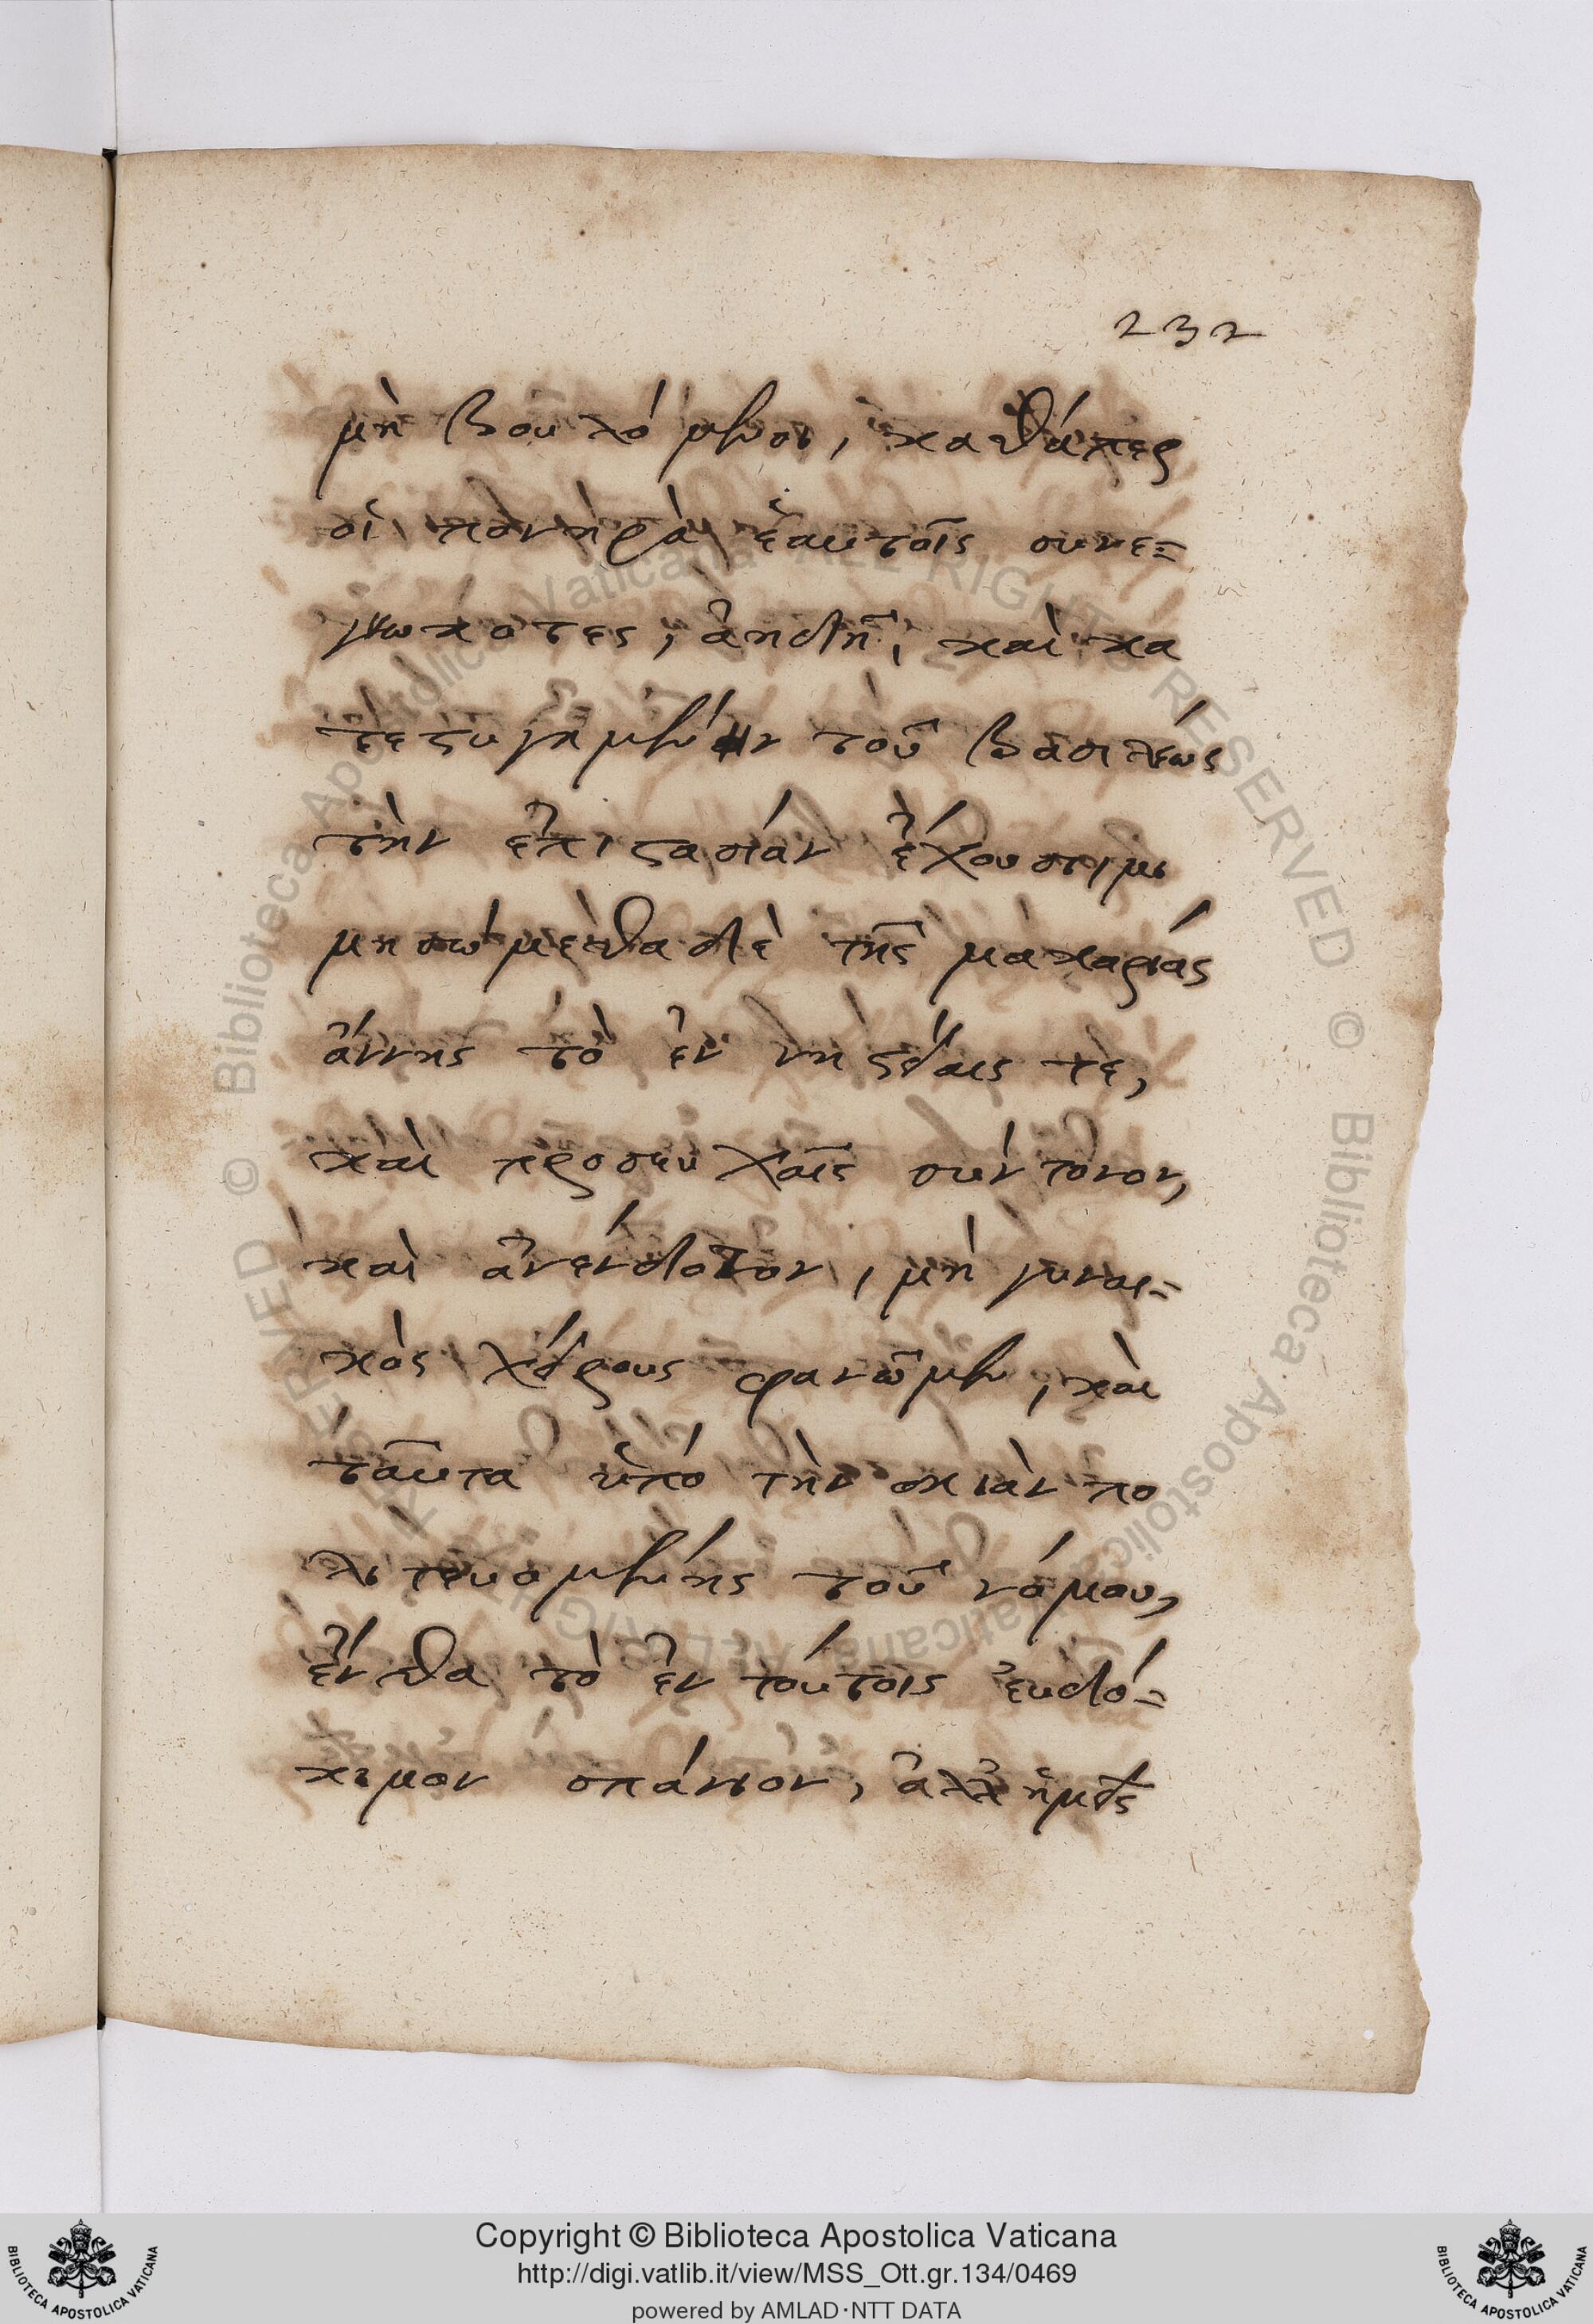 232
μὴ βουλόμενοι, καθάπερ
οἱ πονηρὰ ἑαυτοῖς συνε=
γνωκοτες, ἀηδῆ, καὶ κα
τεστυγημένην τοῦ βασιλέως
τὴν ἐπιστασίαν ἔχουσι, μι
μησώμεθα δὲ τῆς μακαρίας
ἄννης τὸ ἐν νηστείαις τε,
καὶ προσευχαῖς σύντονον,
καὶ ἀνένδοτον, μὴ γυναι=
κὸς χείρους φανῶμεν, καὶ
ταῦτα ὑπὸ τὴν σκιὰν πο
λιτευομένης τοῦ νόμου,
ἔνθα τὸ ἐν τούτοις εὐδό=
κιμον σπάνιον, ἀλλ' ἡμεῖς
© Biblioteca Apostolica Vaticana ALL RIGHTS RESERVED © Biblioteca Apostolica Vaticana ALL RIGHTS RESERVED
Copyright © Biblioteca Apostolica Vaticana
http://digi.vatlib.it/view/MSS_Ott.gr.134/0469
powered by AMLAD·NTT DATA
BIBLIOTECA APOSTOLICA VATICANA
BIBLIOTECA APOSTOLICA VATICANA